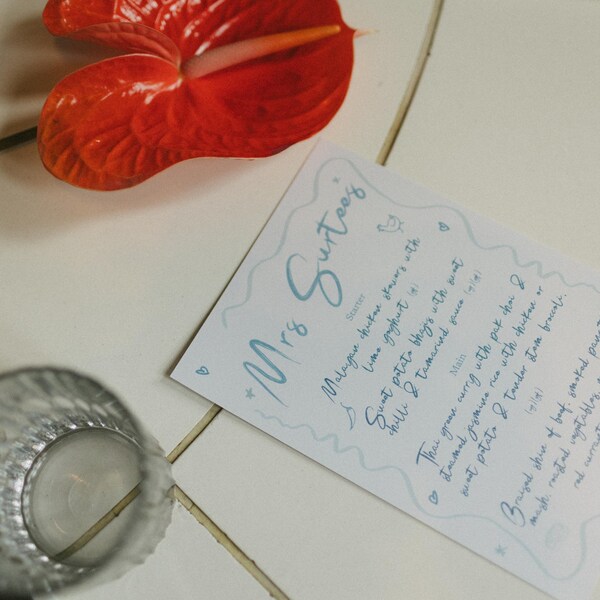 Mrs Surtees
Starter
Malaysian chicken skewers with
lime yoghurt (g)
Sweet potato bhajis with sweet
chilli & tamarind sauce (v)(g)
Main
Thai green curry with pak choi &
steamed jasmine rice with chicken or
sweet potato & tender stem broccoli.
(v)(g)
Braised shin of beef, smoked
mash, roasted vegetables,
red currant